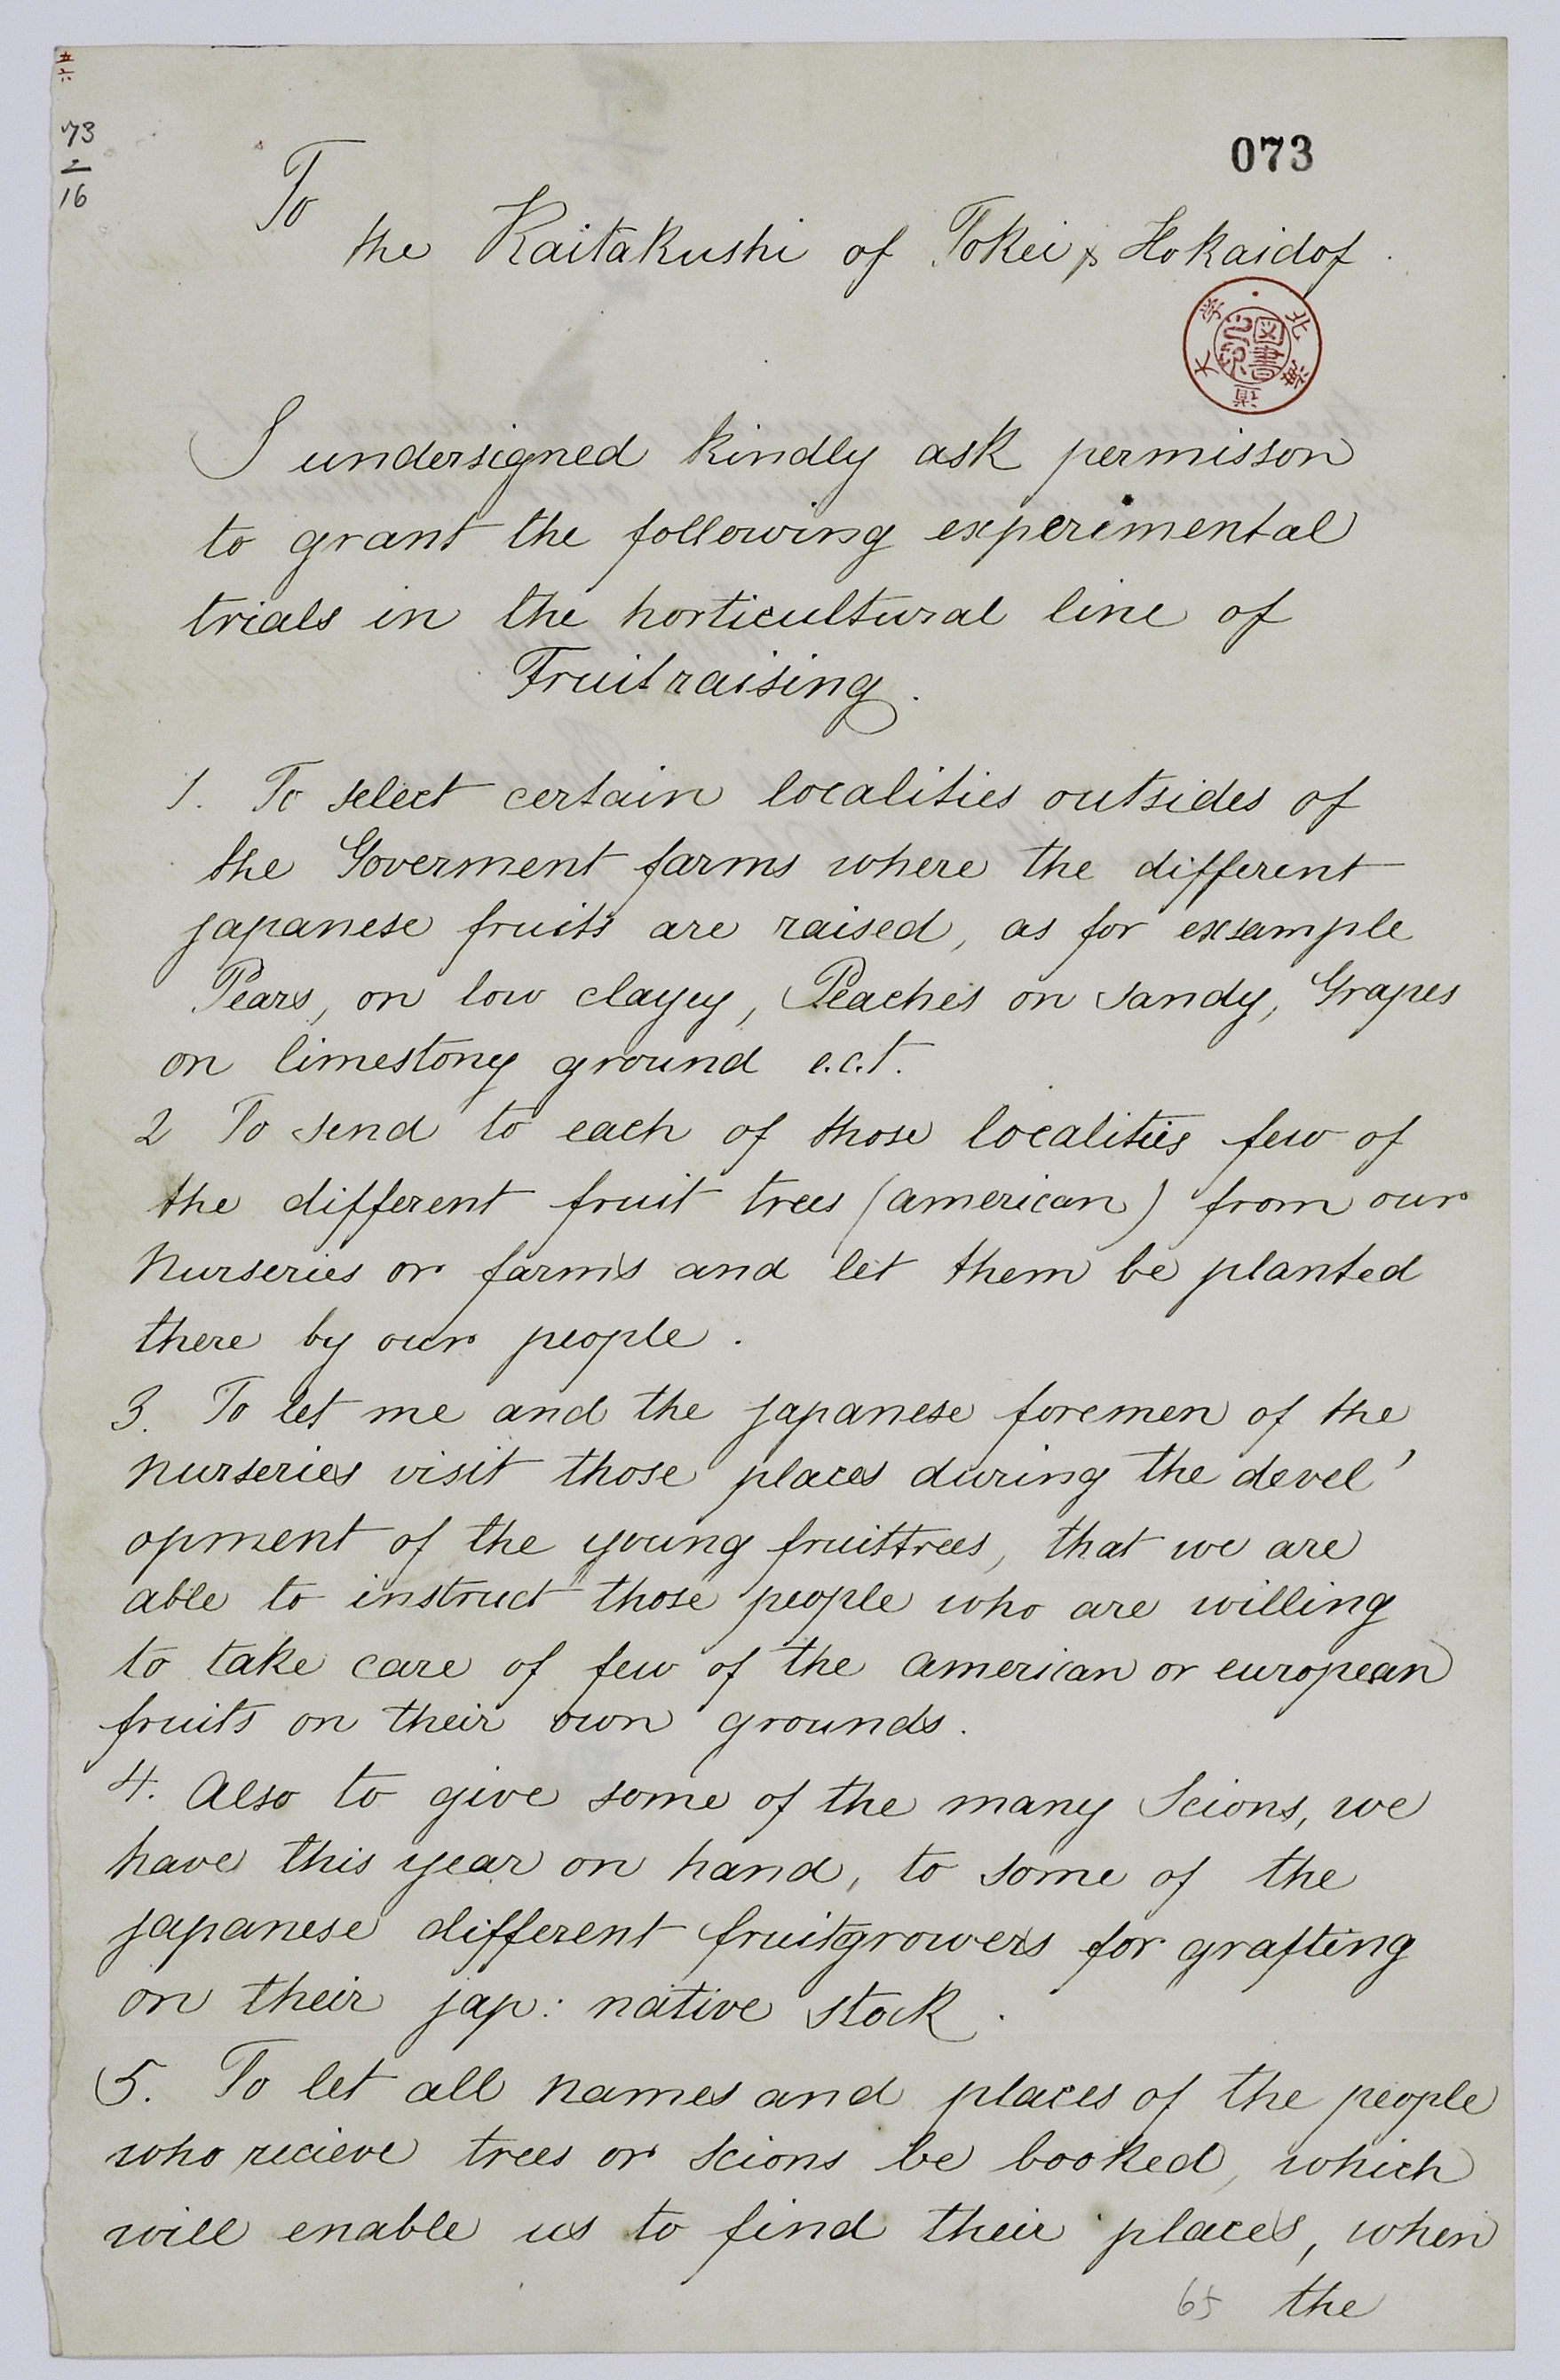 五六
73
2
16
073
To
the Kaitakushi of Tokei & Hokaidof.
北海道大学
図書之印
I undersigned kindly ask permisson
to grant the following experimental
trials in the horticultural line of
Fruitraising.
1. To select certain localities outsides of
the Goverment farms where the different
japanese fruits are raised, as for exsample
Pears, on low clayey, Peaches on sandy, Grapes
on limestony ground e.c.t.
2 To send to each of those localities few of
the different fruit trees (american) from our
Nurseries or farms and let them be planted
there by our people.
3. To let me and the japanese foremen of the
nurseries visit those places during the devel'
opment of the young fruittrees, that we are
able to instruct those people who are willing
to take care of few of the american or european
fruits on their own grounds.
4. Also to give some of the many Scions, we
have this year on hand, to some of the
japanese different fruitgrowers for grafting
on their jap: native stock.
5. To let all names and places of the people
who recieve trees or scions be booked, which
will enable us to find their places, when
65 the